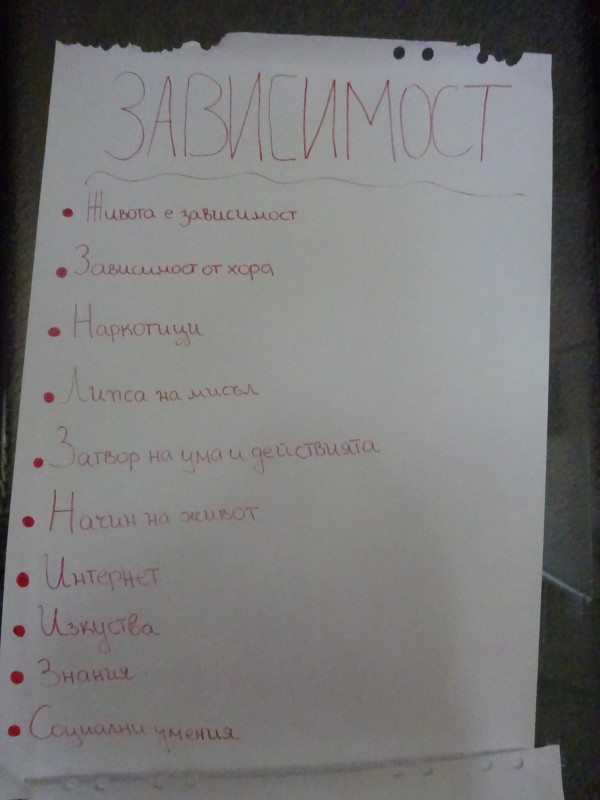 ЗАВИСИМОСТ
• Живота е зависимост
• Зависимост от хора
• Наркотици
• Липса на мисъл
• Затвор на ума и действията
• Начин на живот
• Интернет
• Изкуства
• Знания
• Социални умения